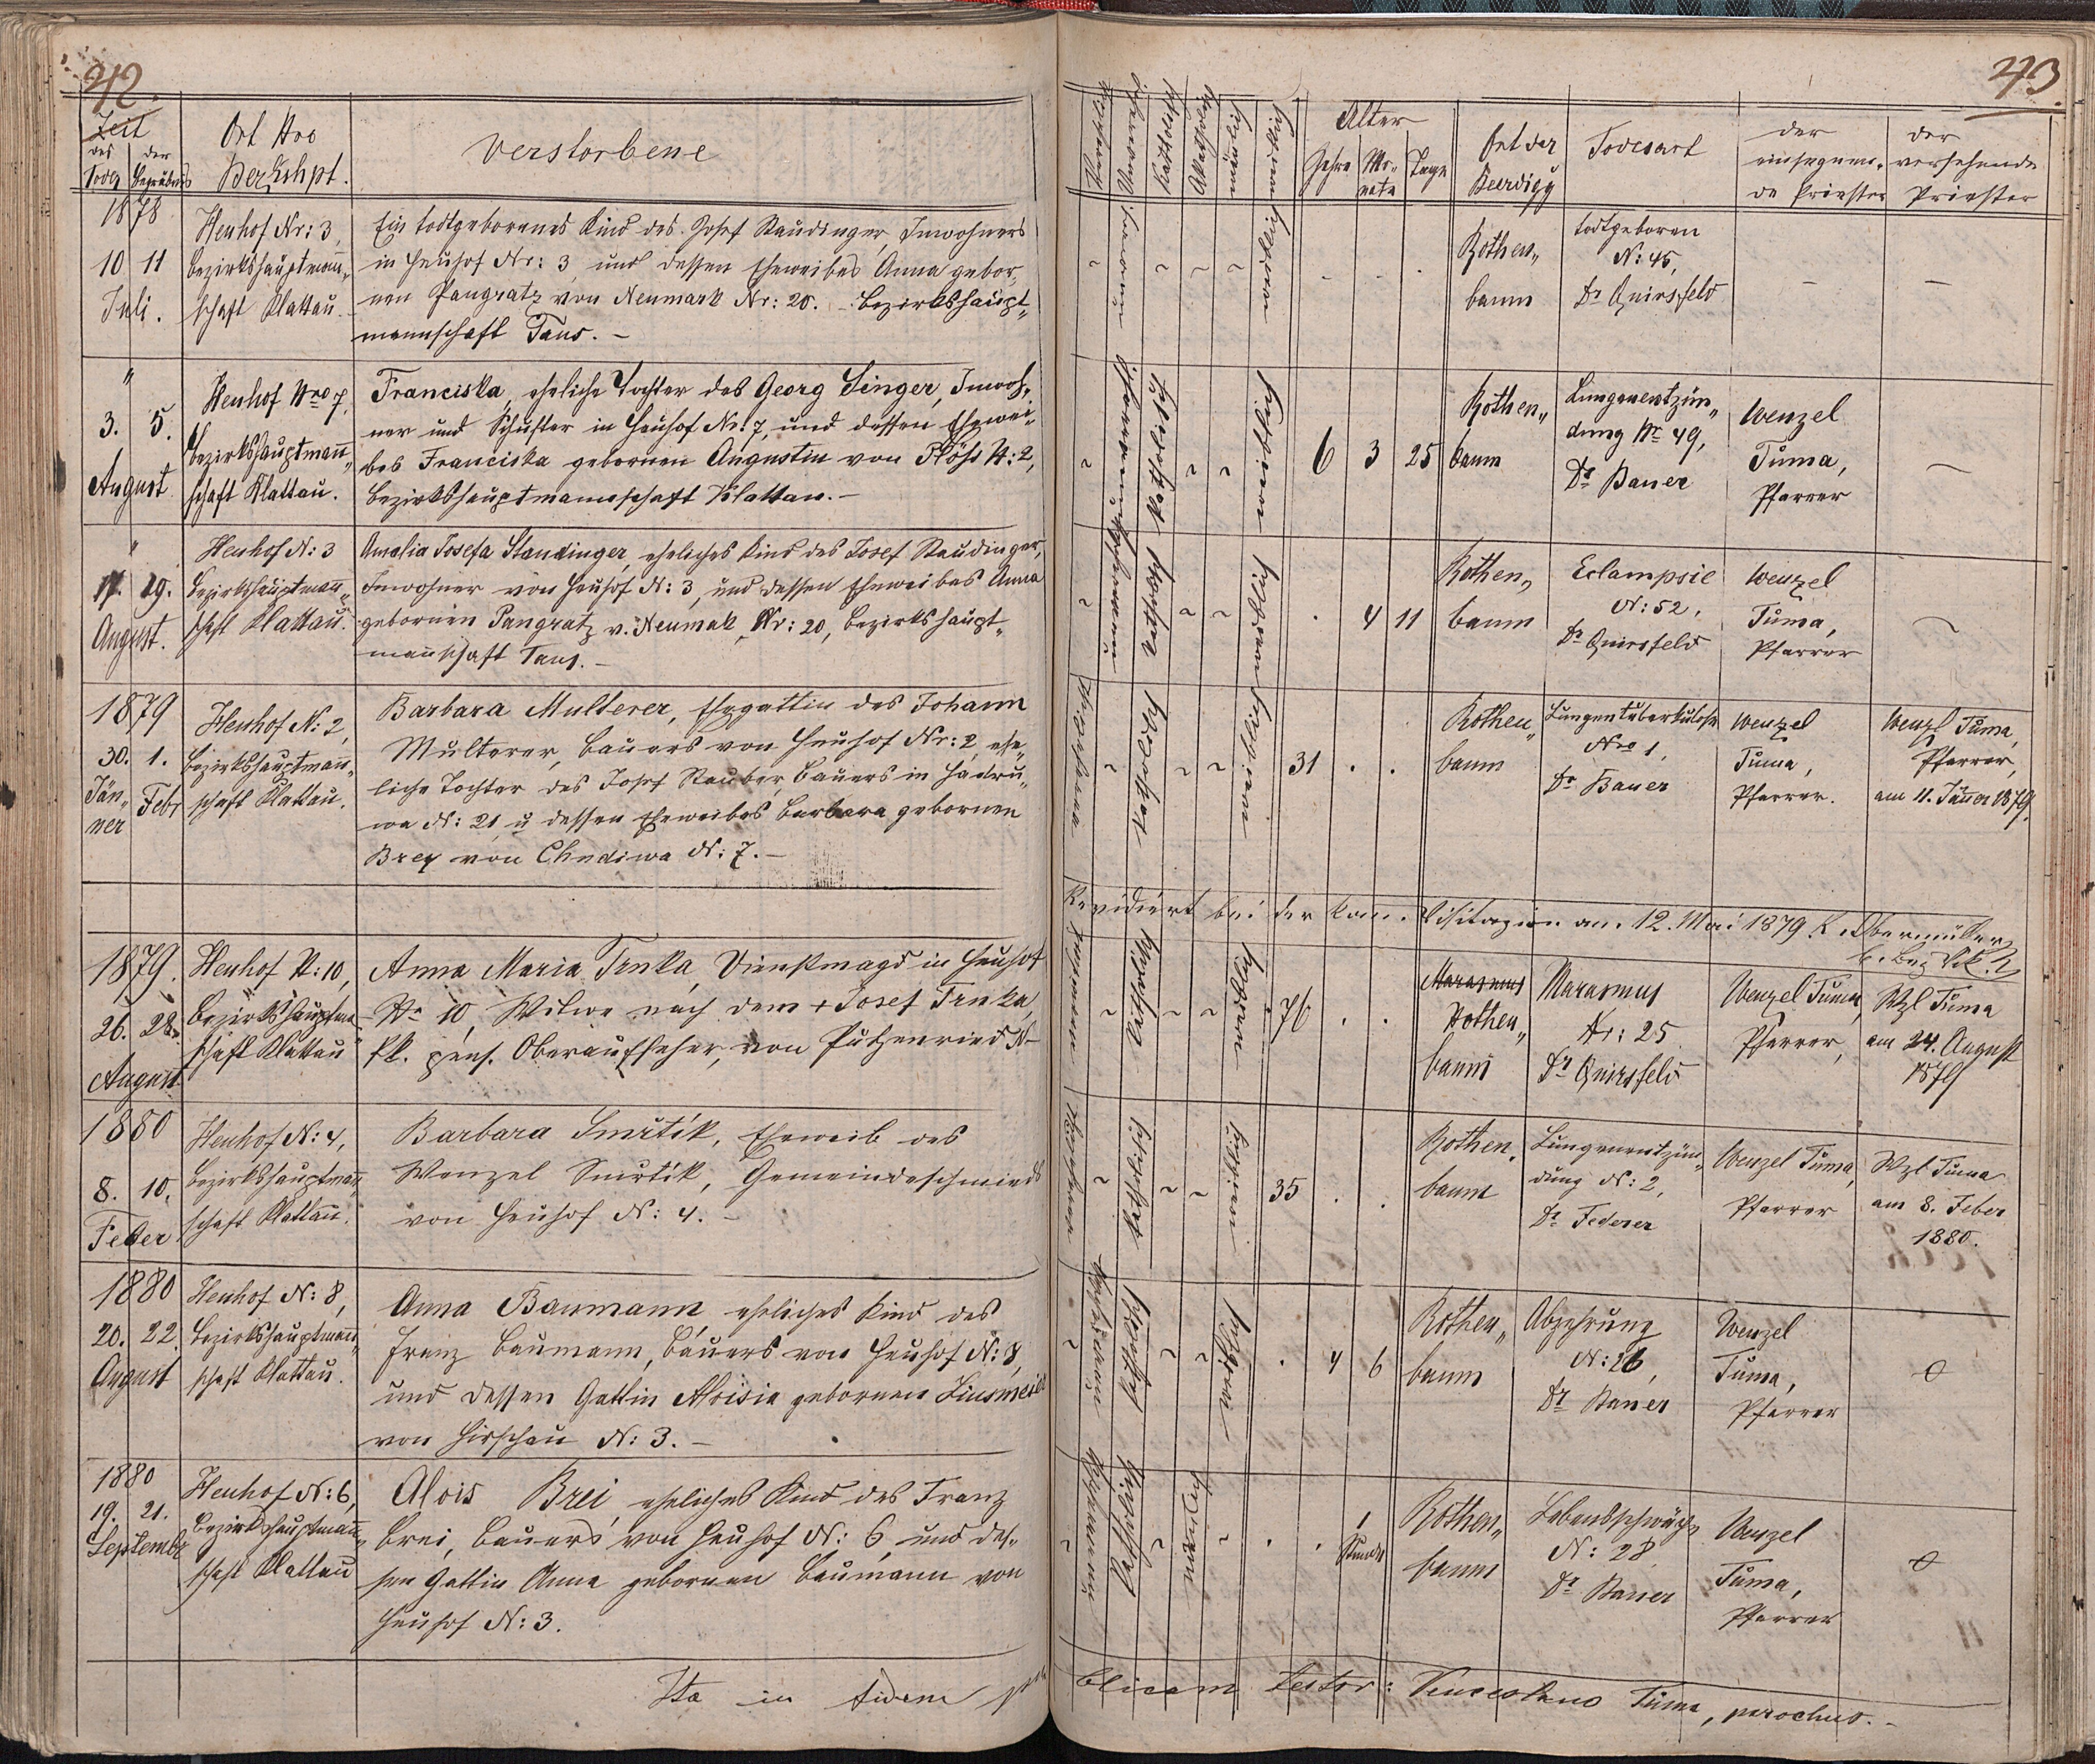 42.
Zeit
des
der
Ort Nro
Todes
Begräbnis
Bezkshpt.
Verstorbene
1878
10 11
Juli.
Heuhof Nr: 3,
Bezirkshauptmann„
schaft Klattau.
Ein todtgeborenes Kind des Josef Staudinger, Inwohners
in Heuhof Nr: 3 und dessen Eheweibes Anna gebor„
nen Pangratz von Neumark Nr: 20. – Bezirkshaupt„
mannschaft Taus. –
"
3. 5.
August
Heuhof Nro 7,
Bezirkshauptmann„
schaft Klattau.
Franciska, eheliche Tochter des Georg Singer, Inwoh„
ner und Schuster in Heuhof Nr: 7, und dessen Ehewei„
bes Franciska gebornen Augustin von Plöss N: 2,
Bezirkshauptmannschaft Klattau. –
"
17. 19.
August.
Heuhof N: 3
Bezirkshauptmann„
schaft Klattau.
Amalia Josefa Staudinger, eheliches Kind des Josef Staudinger,
Inwohner von Heuhof N: 3, und dessen Eheweibes Anna
gebornen Pangratz v. Neumak, Nr: 20, Bezirkshaupt„
mannschaft Taus. –
1879
30. 1.
Jän„ Febr
ner
Heuhof N: 2,
Bezirkshauptmann„
schaft Klattau.
Barbara Multerer, Ehegattin des Johann
Multerer, Bauers von Heuhof Nr: 2, ehe„
liche Tochter des Josef Stauber, Bauers in Hadru„
wa N: 21 u dessen Eheweibes Barbara gebornen
Brey von Chudiwa N: 7. –
1879.
26. 28.
August
Heuhof N: 10,
Bezirkshauptma„
schaft Klattau
Anna Maria Trnka, Dienstmagd in Heuhof
Nr 10, Witwe nach dem + Josef Trnka,
kk. pens. Oberaufseher, von Putzenried N–
1880
8. 10.
Feber
Heuhof N: 4,
Bezirkshauptmann„
schaft Klattau.
Barbara Smrtik, Eheweib des
Wenzel Smrtik, Gemeindeschmieds
von Heuhof N: 4. –
1880
20. 22.
August
Heuhof N: 8,
Bezirkshauptmann„
schaft Klattau.
Anna Baumann, eheliches Kind des
Franz Baumann, Bauers von Heuhof N: 8,
und dessen Gattin Aloisia gebornen
von Hirschau N: 3. –
1880
19. 21.
Septembr
Heuhof N: 6,
Bezirkshauptmann„
schaft Klattau
Alois Brei, eheliches Kind des Franz
Brei, Bauers von Heuhof N: 6, und des„
sen Gattin Anna gebornen Baumann von
Heuhof N: 3.
Ita in fidem pu
43.
Katholisch
Akatholisch
männlich
weiblich
Alter
Jahre
Mo„
nate
Tage
Ort der
Beerdigg
Todesart
der
einsegnen„
de Priester
der
versehende
Priester
Rothen„
baum
todtgeboren
N: 45,
Dr Quirsfeld
–
–
Katholisch
6 3 25
Rothen„
baum
Lungenentzün„
dung Nr 49,
Dr Bauer
Wenzel
Tuma,
Pfarrer
–
Katholisch
4 11
Rothen„
baum
Eclampsie
N: 52,
Dr Quirsfeld
Wenzel
Tuma,
Pfarrer
Katholisch
weiblich
31 . .
Rothen„
baum
Lungentuberkulose
Nro 1,
Dr Bauer
Wenzel
Tuma,
Pfarrer.
Wenzl Tuma,
Pfarrer,
am 11. Jänner 1879.
Revidiert bei der kan. Visitazion am 12. Mai 1879 K. Obermüller
b. Bez Vik.
Katholisch
weiblich
76 . .
Marasmus
Rothen„
baum
Marasmus
Nr: 25
Dr Quirsfeld
Wenzel Tuma,
Pfarrer,
Wzl Tuma
am 24. August
1879
Katholisch
weiblich
35 . .
Rothen„
baum
Lungenentzün„
dung N: 2,
Dr Federer
Wenzel Tuma,
Pfarrer
Wzl Tuma
am 8. Feber
1880.
Katholisch
weiblich
. 4 6
Rothen„
baum
Abzehrung
N: 26,
Dr Bauer
Wenzel
Tuma,
Pfarrer
Katholisch
männlich
. . 1
Stunde
Rothen„
baum
Lebensschwäche
N: 28
Dr Bauer
Wenzel
Tuma,
Pfarrer
blicam testor: Venceslaus Tuma, parochus. –